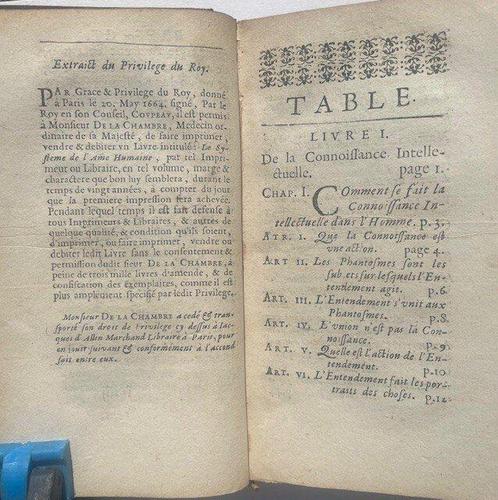 Extraict du Privilege du Roy.
PAR Grace & Privilege du Roy, donné
à Paris le 20. May 1664. signé, Par le
Roy en son Conseil, COVPEAV, il est permis
à Monsieur DE LA CHAMBRE, Medecin or-
dinaire de sa Majesté, de faire imprimer,
vendre & debiter vn Livre intitulé: Le Sy-
stéme de l'Ame Humaine, par tel Impri-
meur ou Libraire, en tel volume, marge &
charactere que bon luy semblera, durant le
temps de vingt années, à compter du jour
que la premiere impression sera achevée.
Pendant lequel temps il est fait défense à
tous Imprimeurs & Libraires, & autres de
quelque qualité, & condition qu'ils soient
d'imprimer, ou faire imprimer, vendre ou
debiter ledit Livre sans le consentement &
permission dudit sieur DE LA CHAMBRE, à
peine de trois mille livres d'amende, & de
confiscation des exemplaires, comme il est
plus amplement specifié par ledit Privilege.
Monsieur DE LA CHAMBRE a cedé & trans-
porté son droit de Privilege cy dessus à Iac-
ques d'Allin Marchand Libraire à Paris, pour
en jouir suivant & conformément à l'accord
fait entre eux.
TABLE.
LIVRE I.
De la Connoissance Intelle-
ctuelle. page 1.
CHAP. I. Comment se fait la
Connoissance In-
tellectuelle dans l'Homme. p.3.
ATR. I. Que la Connoissance est
vne action. page 4.
ART II. Les Phantosmes sont les
sub ets sur lesquels l'En-
tendement agit. p.6.
ART. III. L'Entendement s'vnit aux
Phantosmes. p.8.
ART. IV. L'vnion n'est pas la Con-
noissance. p.9.
ART. V. Quelle est l'action de l'En-
tendement. p.10
ART. VI. L'Entendement fait les por-
traits des choses. p.12.